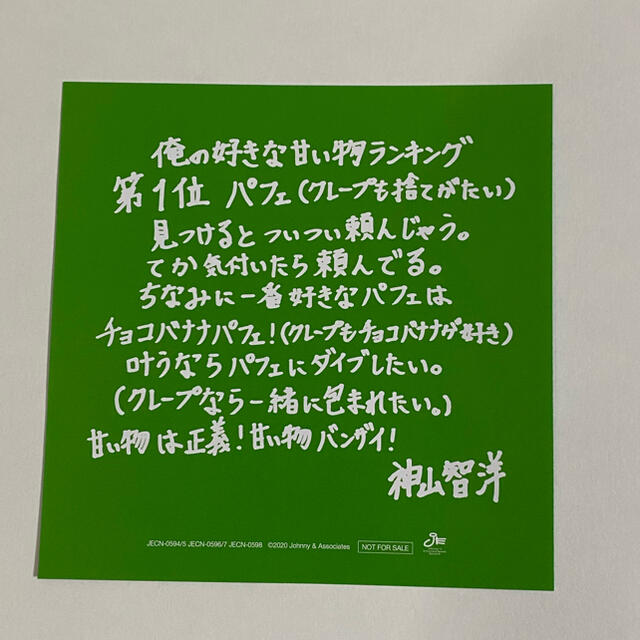 俺の好きな甘い物ランキング
第1位 パフェ(クレープも捨てがたい)
見つけるとついつい頼んじゃう。
てか気付いたら頼んでる。
ちなみに一番好きなパフェは
チョコバナナパフェ!(クレープもチョコバナナが好き)
叶うならパフェにダイブしたい。
(クレープなら一緒に包まれたい。)
甘い物は正義!甘い物バンザイ!
神山智洋
JECN-0594/5 JECN-0596/7 JECN-0598 ©2020 Johnny & Associates NOT FOR SALE